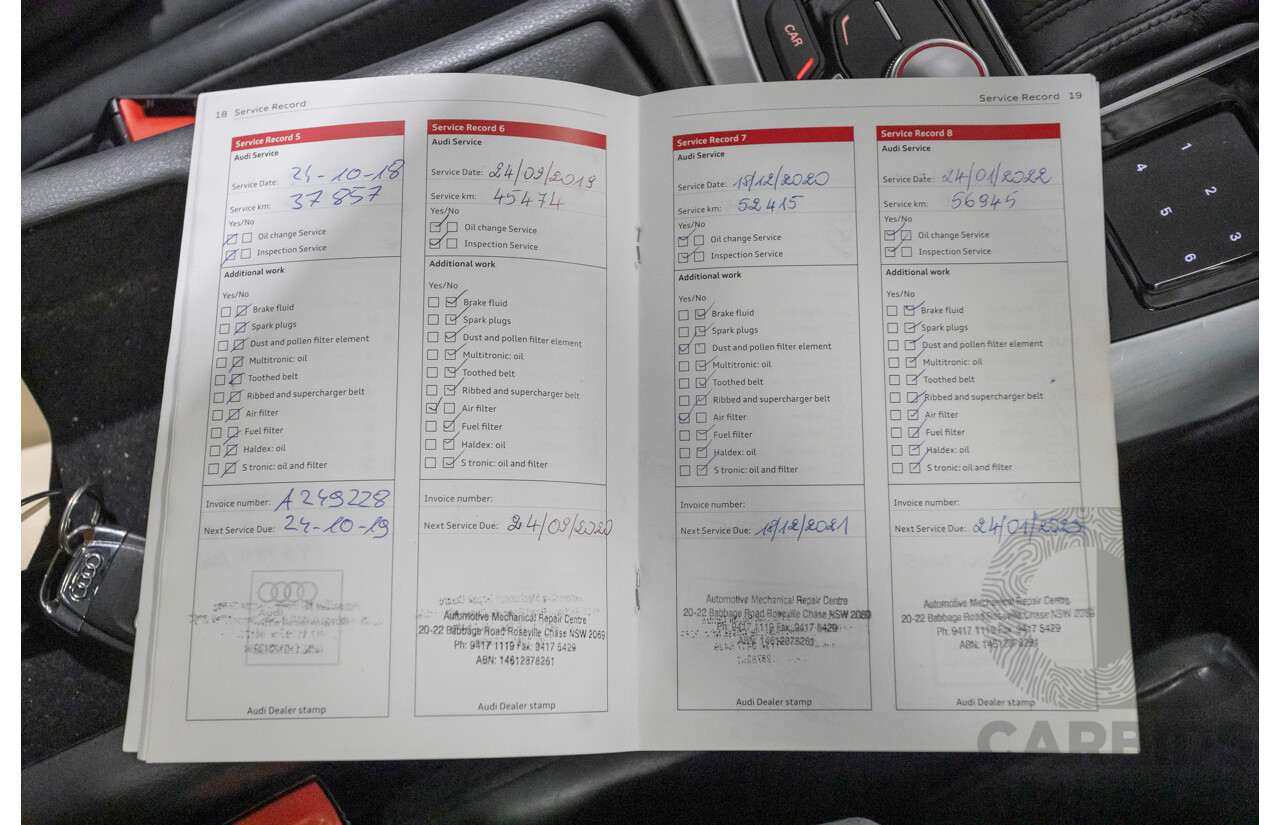 CAR
18 Service Record
Service Record 5
Audi Service
Service Date: 24-10-18
Service km: 37857
Yes/No
Oil change Service
Inspection Service
Additional work
Yes/No
Brake fluid
Spark plugs
Dust and pollen filter element
Multitronic: oil
Toothed belt
Ribbed and supercharger belt
Air filter
Fuel filter
Haldex: oil
S tronic: oil and filter
Invoice number: A249228
Next Service Due: 24-10-19
Audi
Audi Dealer stamp
Service Record 6
Audi Service
Service Date: 24/09/2019
Service km: 45474
Yes/No
Oil change Service
Inspection Service
Additional work
Yes/No
Brake fluid
Spark plugs
Dust and pollen filter element
Multitronic: oil
Toothed belt
Ribbed and supercharger belt
Air filter
Fuel filter
Haldex: oil
S tronic: oil and filter
Invoice number:
Next Service Due: 24/09/2020
Automotive Mechanical Repair Centre
20-22 Babbage Road Roseville Chase NSW 2069
Ph: 9417 1119 Fax: 9417 5429
ABN: 14612878261
Audi Dealer stamp
Service Record 19
Service Record 7
Audi Service
Service Date: 18/12/2020
Service km: 52415
Yes/No
Oil change Service
Inspection Service
Additional work
Yes/No
Brake fluid
Spark plugs
Dust and pollen filter element
Multitronic: oil
Toothed belt
Ribbed and supercharger belt
Air filter
Fuel filter
Haldex: oil
S tronic: oil and filter
Invoice number:
Next Service Due: 18/12/2021
Automotive Mechanical Repair Centre
20-22 Babbage Road Roseville Chase NSW 2069
Ph: 9417 1119 Fax: 9417 5429
ABN: 14612878261
Audi Dealer stamp
Service Record 8
Audi Service
Service Date: 24/01/2022
Service km: 56945
Yes/No
Oil change Service
Inspection Service
Additional work
Yes/No
Brake fluid
Spark plugs
Dust and pollen filter element
Multitronic: oil
Toothed belt
Ribbed and supercharger belt
Air filter
Fuel filter
Haldex: oil
S tronic: oil and filter
Invoice number:
Next Service Due: 24/01/2023
Automotive Mechanical Repair Centre
20-22 Babbage Road Roseville Chase NSW 2069
Ph: 9417 1119 Fax: 9417 5429
ABN: 14612878261
Audi Dealer stamp
1
2
3
4
5
6